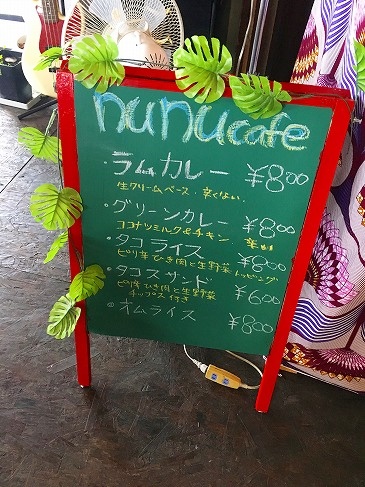 nunucafe
・ラムカレー ¥800
生クリームベース・辛くない
・グリーンカレー ¥800
ココナツミルク&チキン
・タコライス ¥800
ピリ辛ひき肉と生野菜トッピング
・タコスサンド ¥600
ピリ辛ひき肉と生野菜
チップス付き
・オムライス ¥800